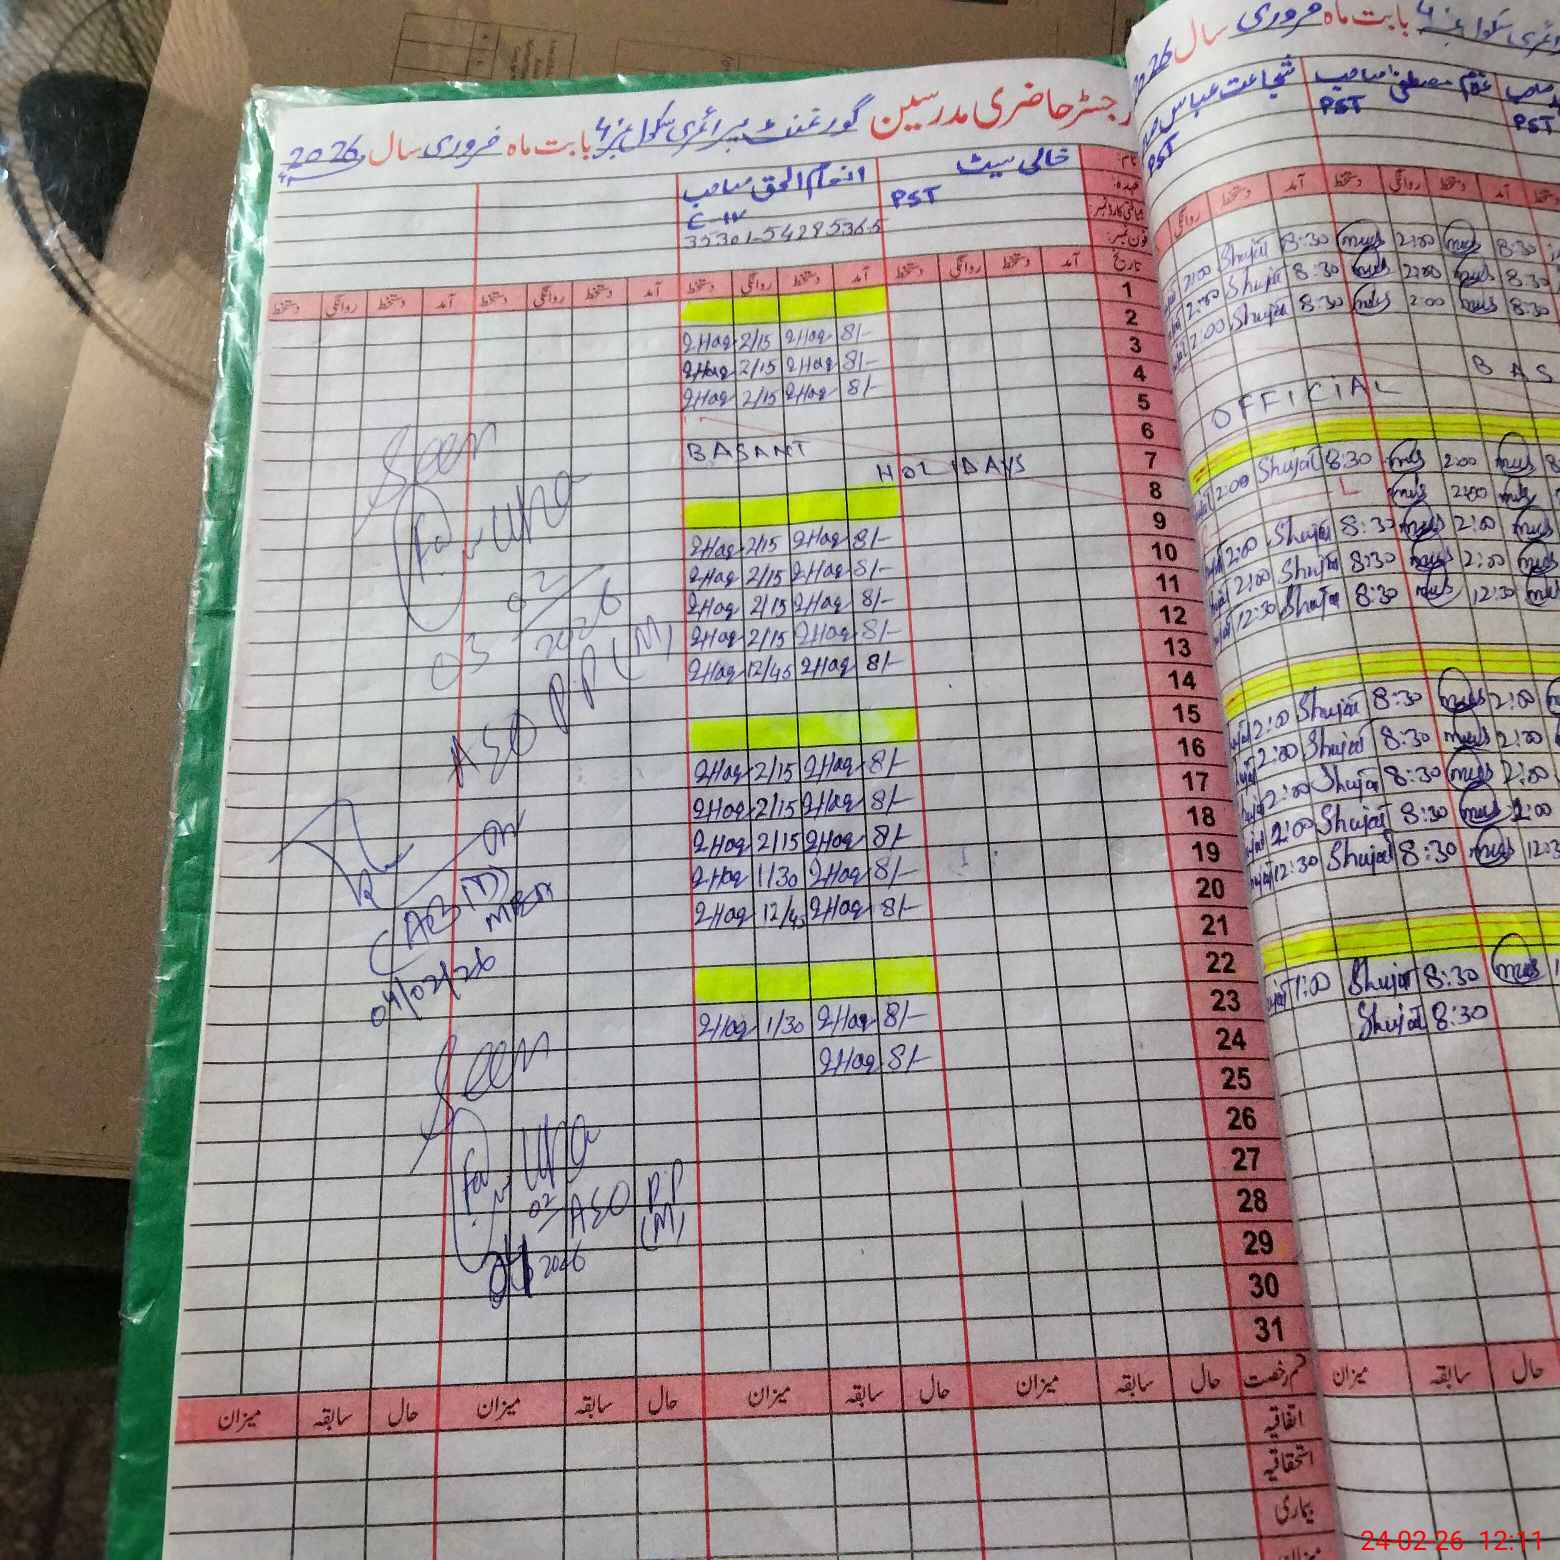 رجسٹر حاضری مدرسین گورنمنٹ پرائمری سکول نمبر 4 بابت ماہ فروری سال 2026
نام:
خالی سیٹ
انعام الحق صاحب
عہدہ:
PST
C-IV
شناختی کارڈ نمبر
35301-5428536-5
فون نمبر:
تاریخ آمد دستخط روانگی دستخط آمد دستخط روانگی دستخط آمد دستخط روانگی دستخط آمد دستخط روانگی دستخط
1
2 8/- 2Haq 2/15 2Haq
3 8/- 2Haq 2/15 2Haq
4 8/- 2Haq 2/15 2Haq
5
6 BASANT
7 HOLIDAYS
8
9 8/- 2Haq 2/15 2Haq
10 8/- 2Haq 2/15 2Haq
11 8/- 2Haq 2/15 2Haq
12 8/- 2Haq 2/15 2Haq
13 8/- 2Haq 12/45 2Haq
14
15
16 8/- 2Haq 2/15 2Haq
17 8/- 2Haq 2/15 2Haq
18 8/- 2Haq 2/15 2Haq
19 8/- 2Haq 1/30 2Haq
20 8/- 2Haq 12/45 2Haq
21
22
23 8/- 2Haq 1/30 2Haq
24 8/- 2Haq
25
26
27
28
29
30
31
Seen
03 02 2026
ASO P.P (M)
04/02/26
Seen
02
ASO P.P
(M)
04 2026
قسم رخصت حال سابقہ میزان حال سابقہ میزان حال سابقہ میزان حال سابقہ میزان
اتفاقیہ
استحقاقیہ
بیماری
میزان
بابت ماہ فروری سال 2026
شجاعت عباس
PST
غلام مصطفیٰ صاحب
PST
صاحب
PST
دستخط آمد دستخط روانگی دستخط آمد دستخط روانگی
2:00 Shujat 8:30 mus 2:00 mus 8:30
2:00 Shujat 8:30 mus 2:00 mus 8:30
2:00 Shujat 8:30 mus 2:00 mus 8:30
BAS
OFFICIAL
2:00 Shujat 8:30 mus 2:00 mus 8
L mus 2:00 mus
2:00 Shujat 8:30 mus 2:00 mus
2:00 Shujat 8:30 mus 2:00 mus
12:30 Shujat 8:30 mus 12:30 mus
2:00 Shujat 8:30 mus 2:00
2:00 Shujat 8:30 mus 2:00
2:00 Shujat 8:30 mus 2:00
2:00 Shujat 8:30 mus 2:00
12:30 Shujat 8:30 mus 12:3
1:00 Shujat 8:30 mus 1
Shujat 8:30
میزان سابقہ حال
24-02-26 12:11